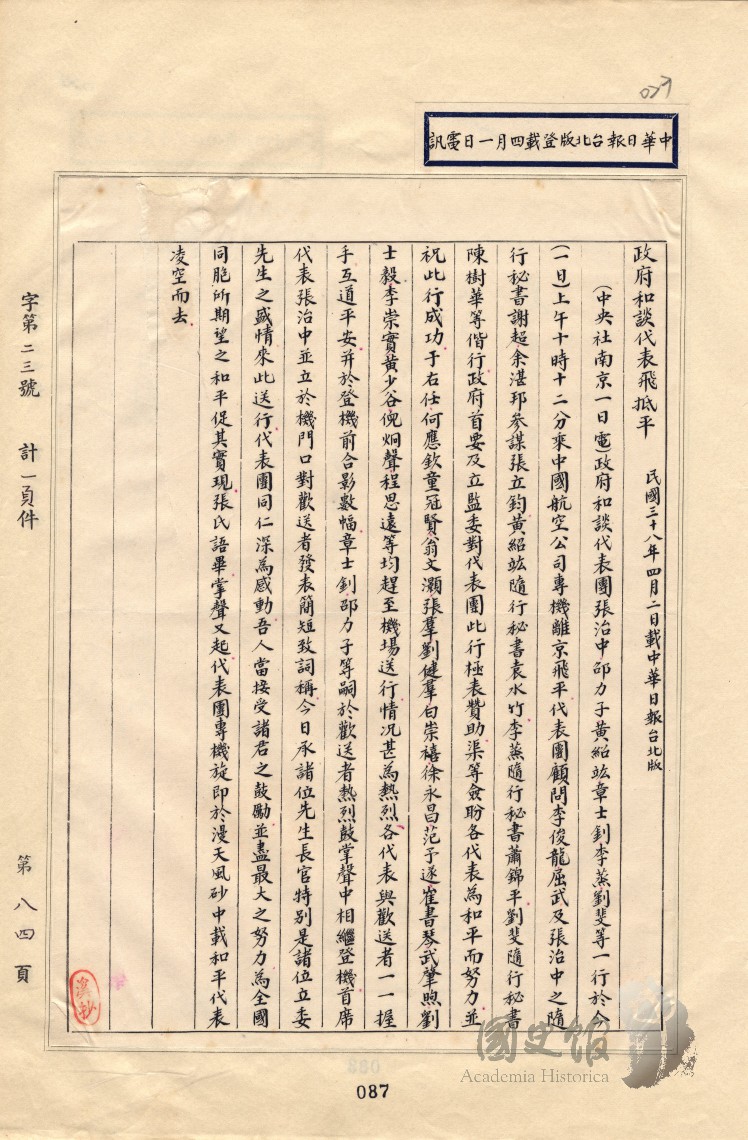 中華日報台北版登載四月一日電訊
政府和談代表飛抵平　民國三十八年四月二日載中華日報台北版
(中央社南京一日電)政府和談代表團張治中邵力子黃紹竑章士釗李蒸劉斐等一行於今
(一日)上午十時十二分乘中國航空公司專機離京飛平代表團顧問李俊龍屈武及張治中之隨
行秘書謝超余湛邦參謀張立鈞黃紹竑隨行秘書袁水竹李蒸隨行秘書蕭錦平劉斐隨行秘書
陳樹華等偕行政府首要及立監委對代表團此行極表贊助渠等僉盼各代表為和平而努力並
祝此行成功于右任何應欽童冠賢翁文灝張羣劉健羣白崇禧徐永昌范予遂崔書琴武肇煦劉
士毅李崇實黃少谷倪炯聲程思遠等均趕至機場送行情況甚為熱烈各代表與歡送者一一握
手互道平安并於登機前合影數幅章士釗邵力子等嗣於歡送者熱烈鼓掌聲中相繼登機首席
代表張治中並立於機門口對歡送者發表簡短致詞稱今日承諸位先生長官特別是諸位立委
先生之盛情來此送行代表團同仁深為感動吾人當接受諸君之鼓勵並盡最大之努力為全國
同胞所期望之和平促其實現張氏語畢掌聲又起代表團專機旋即於漫天風砂中載和平代表
凌空而去
字第二三號　計一頁件
第八四頁
087
國史館
Academia Historica